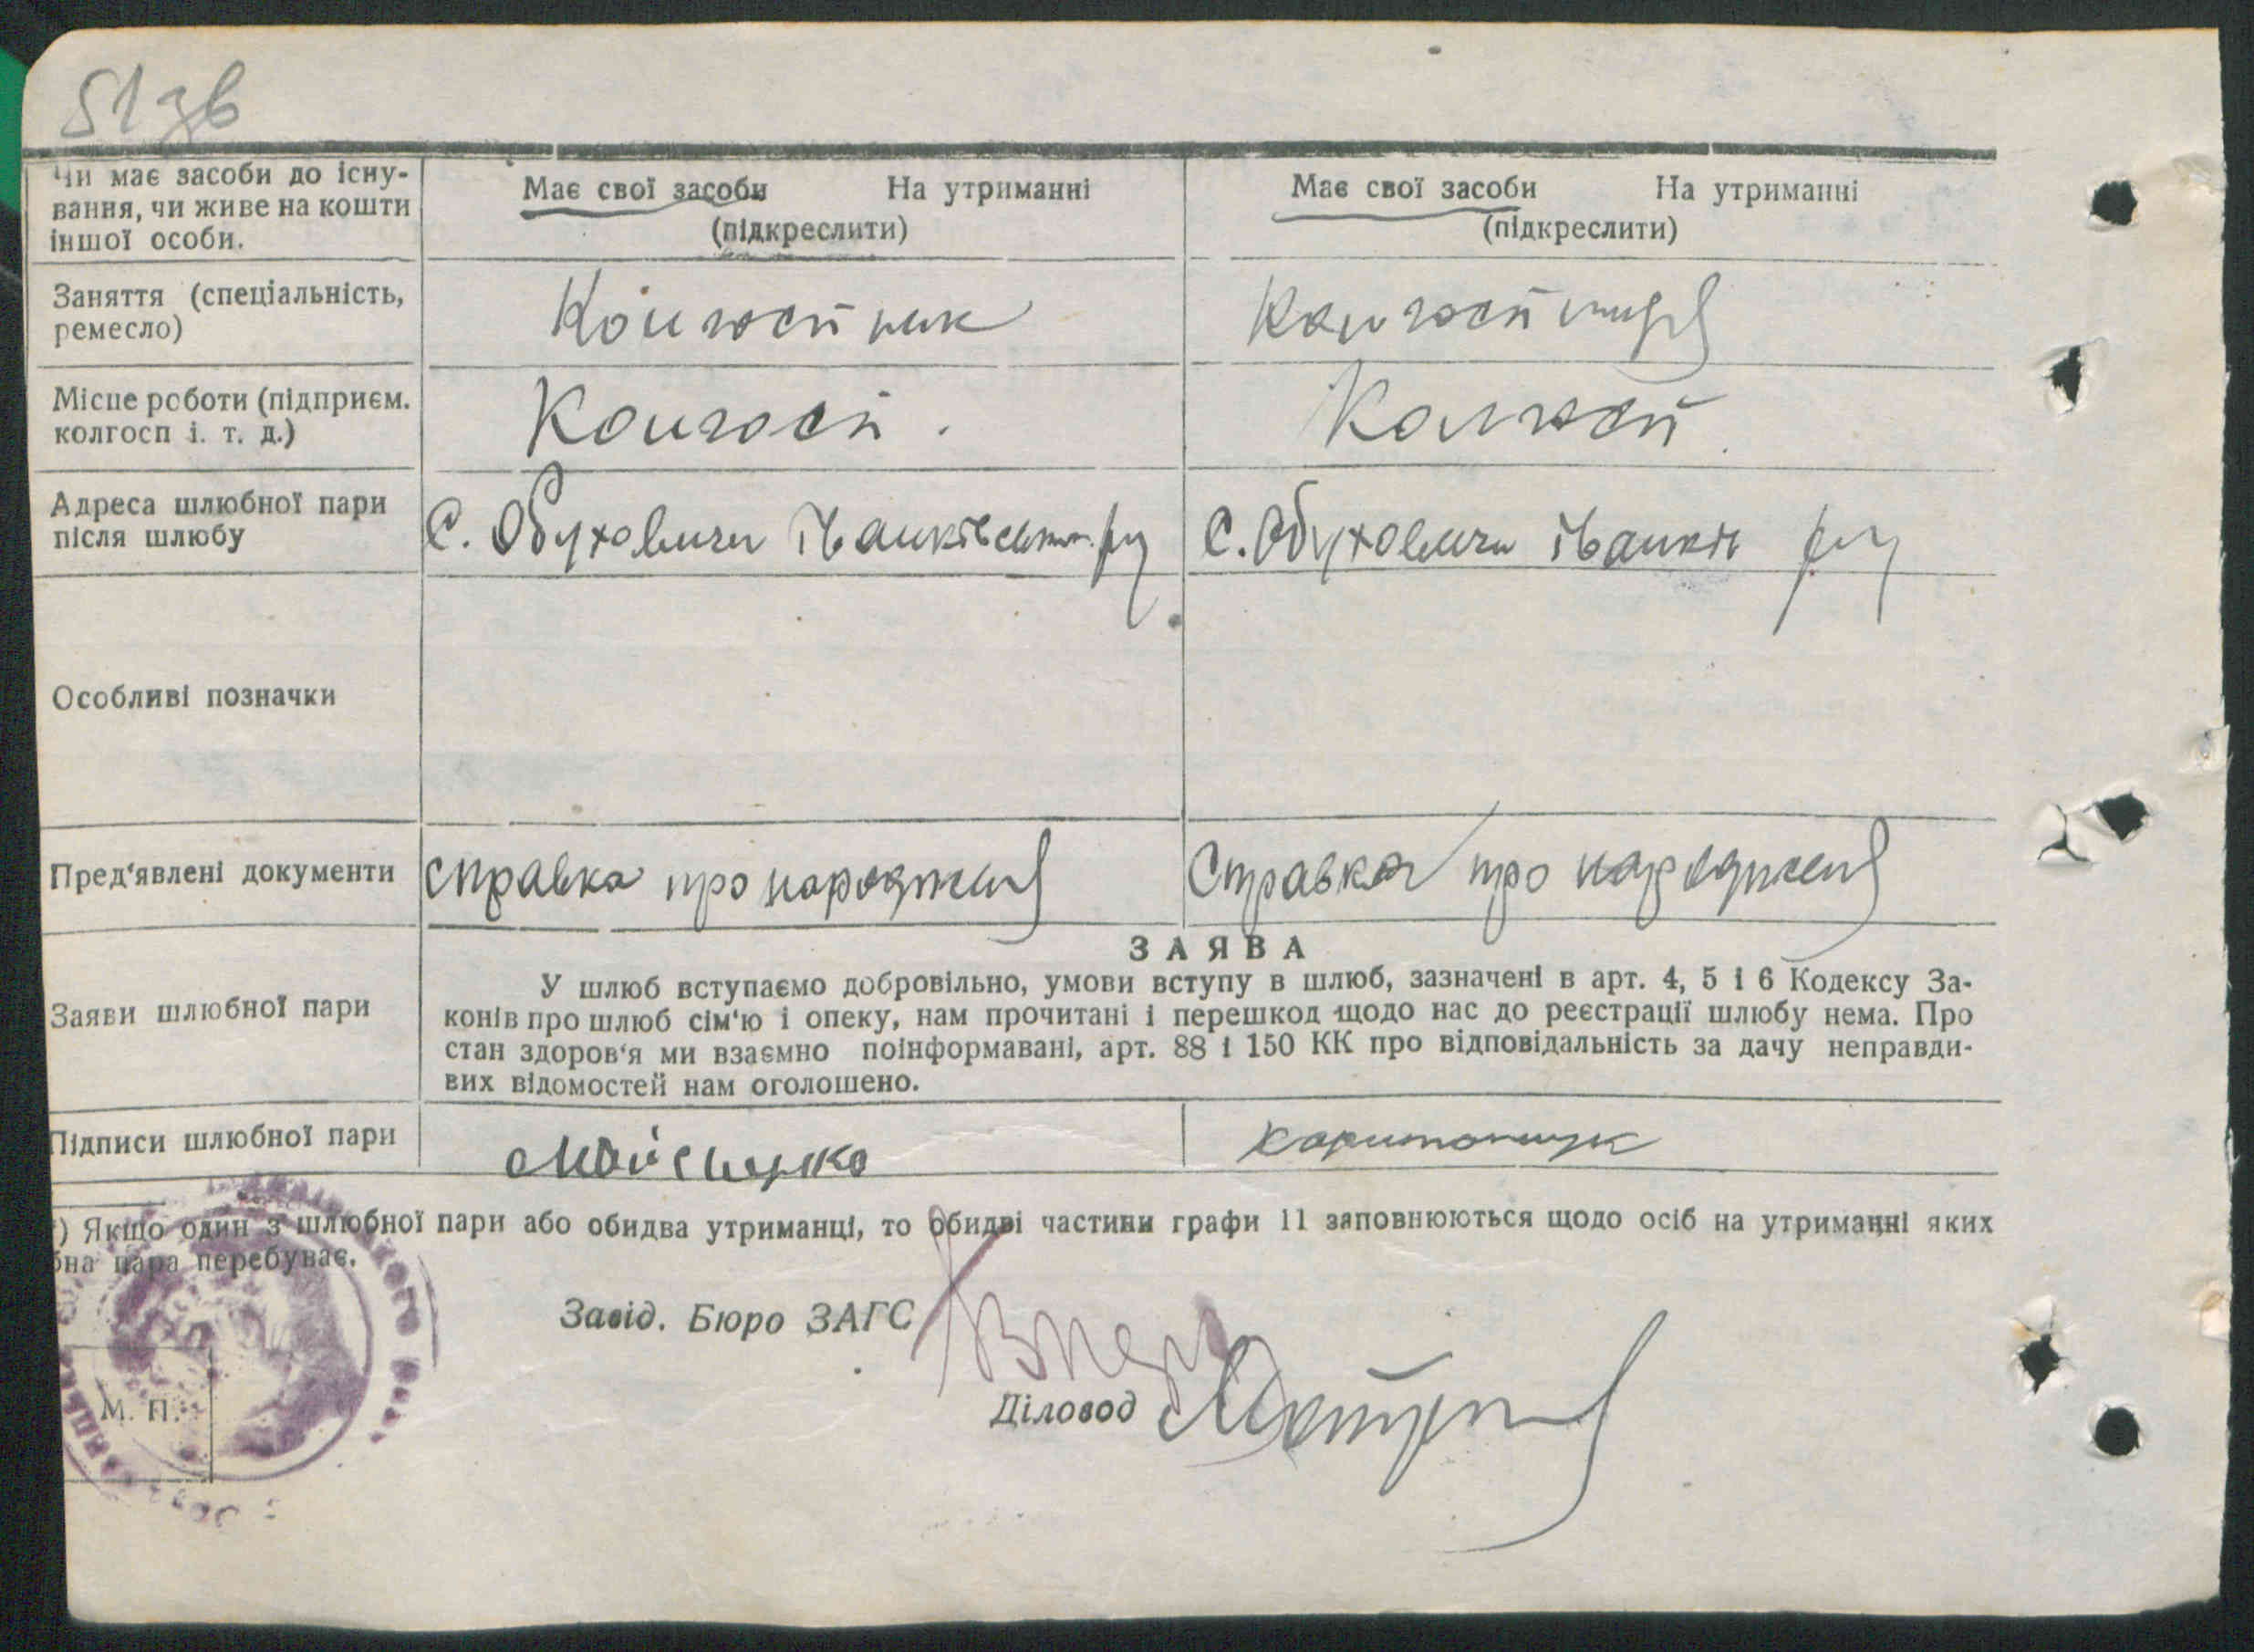 51 зв
Чи має засоби до існу-
вання, чи живе на кошти
іншої особи.
Має свої засоби На утриманні
(підкреслити)
Має свої засоби На утриманні
(підкреслити)
Заняття (спеціальність,
ремесло)
Колгоспник
Колгоспниця
Місце роботи (підприєм.
колгосп і. т. д.)
Колгосп.
Колгосп
Адреса шлюбної пари
після шлюбу
С. Обуховичи Іванківськ. р-ну
С. Обуховичи Іванків р-ну
Особливі позначки
Пред'явлені документи
справка про народження
Справка про народження
Заяви шлюбної пари
ЗАЯВА
У шлюб вступаємо добровільно, умови вступу в шлюб, зазначені в арт. 4, 5 і 6 Кодексу За-
конів про шлюб сім'ю і опеку, нам прочитані і перешкод щодо нас до реєстрації шлюбу нема. Про
стан здоров'я ми взаємно поінформавані, арт. 88 і 150 КК про відповідальність за дачу неправди-
вих відомостей нам оголошено.
Підписи шлюбної пари
) Якщо один з шлюбної пари або обидва утриманці, то обидві частини графи 11 заповнюються щодо осіб на утриманні яких
бна пара перебуває.
Завід. Бюро ЗАГС
Діловод
М. П.